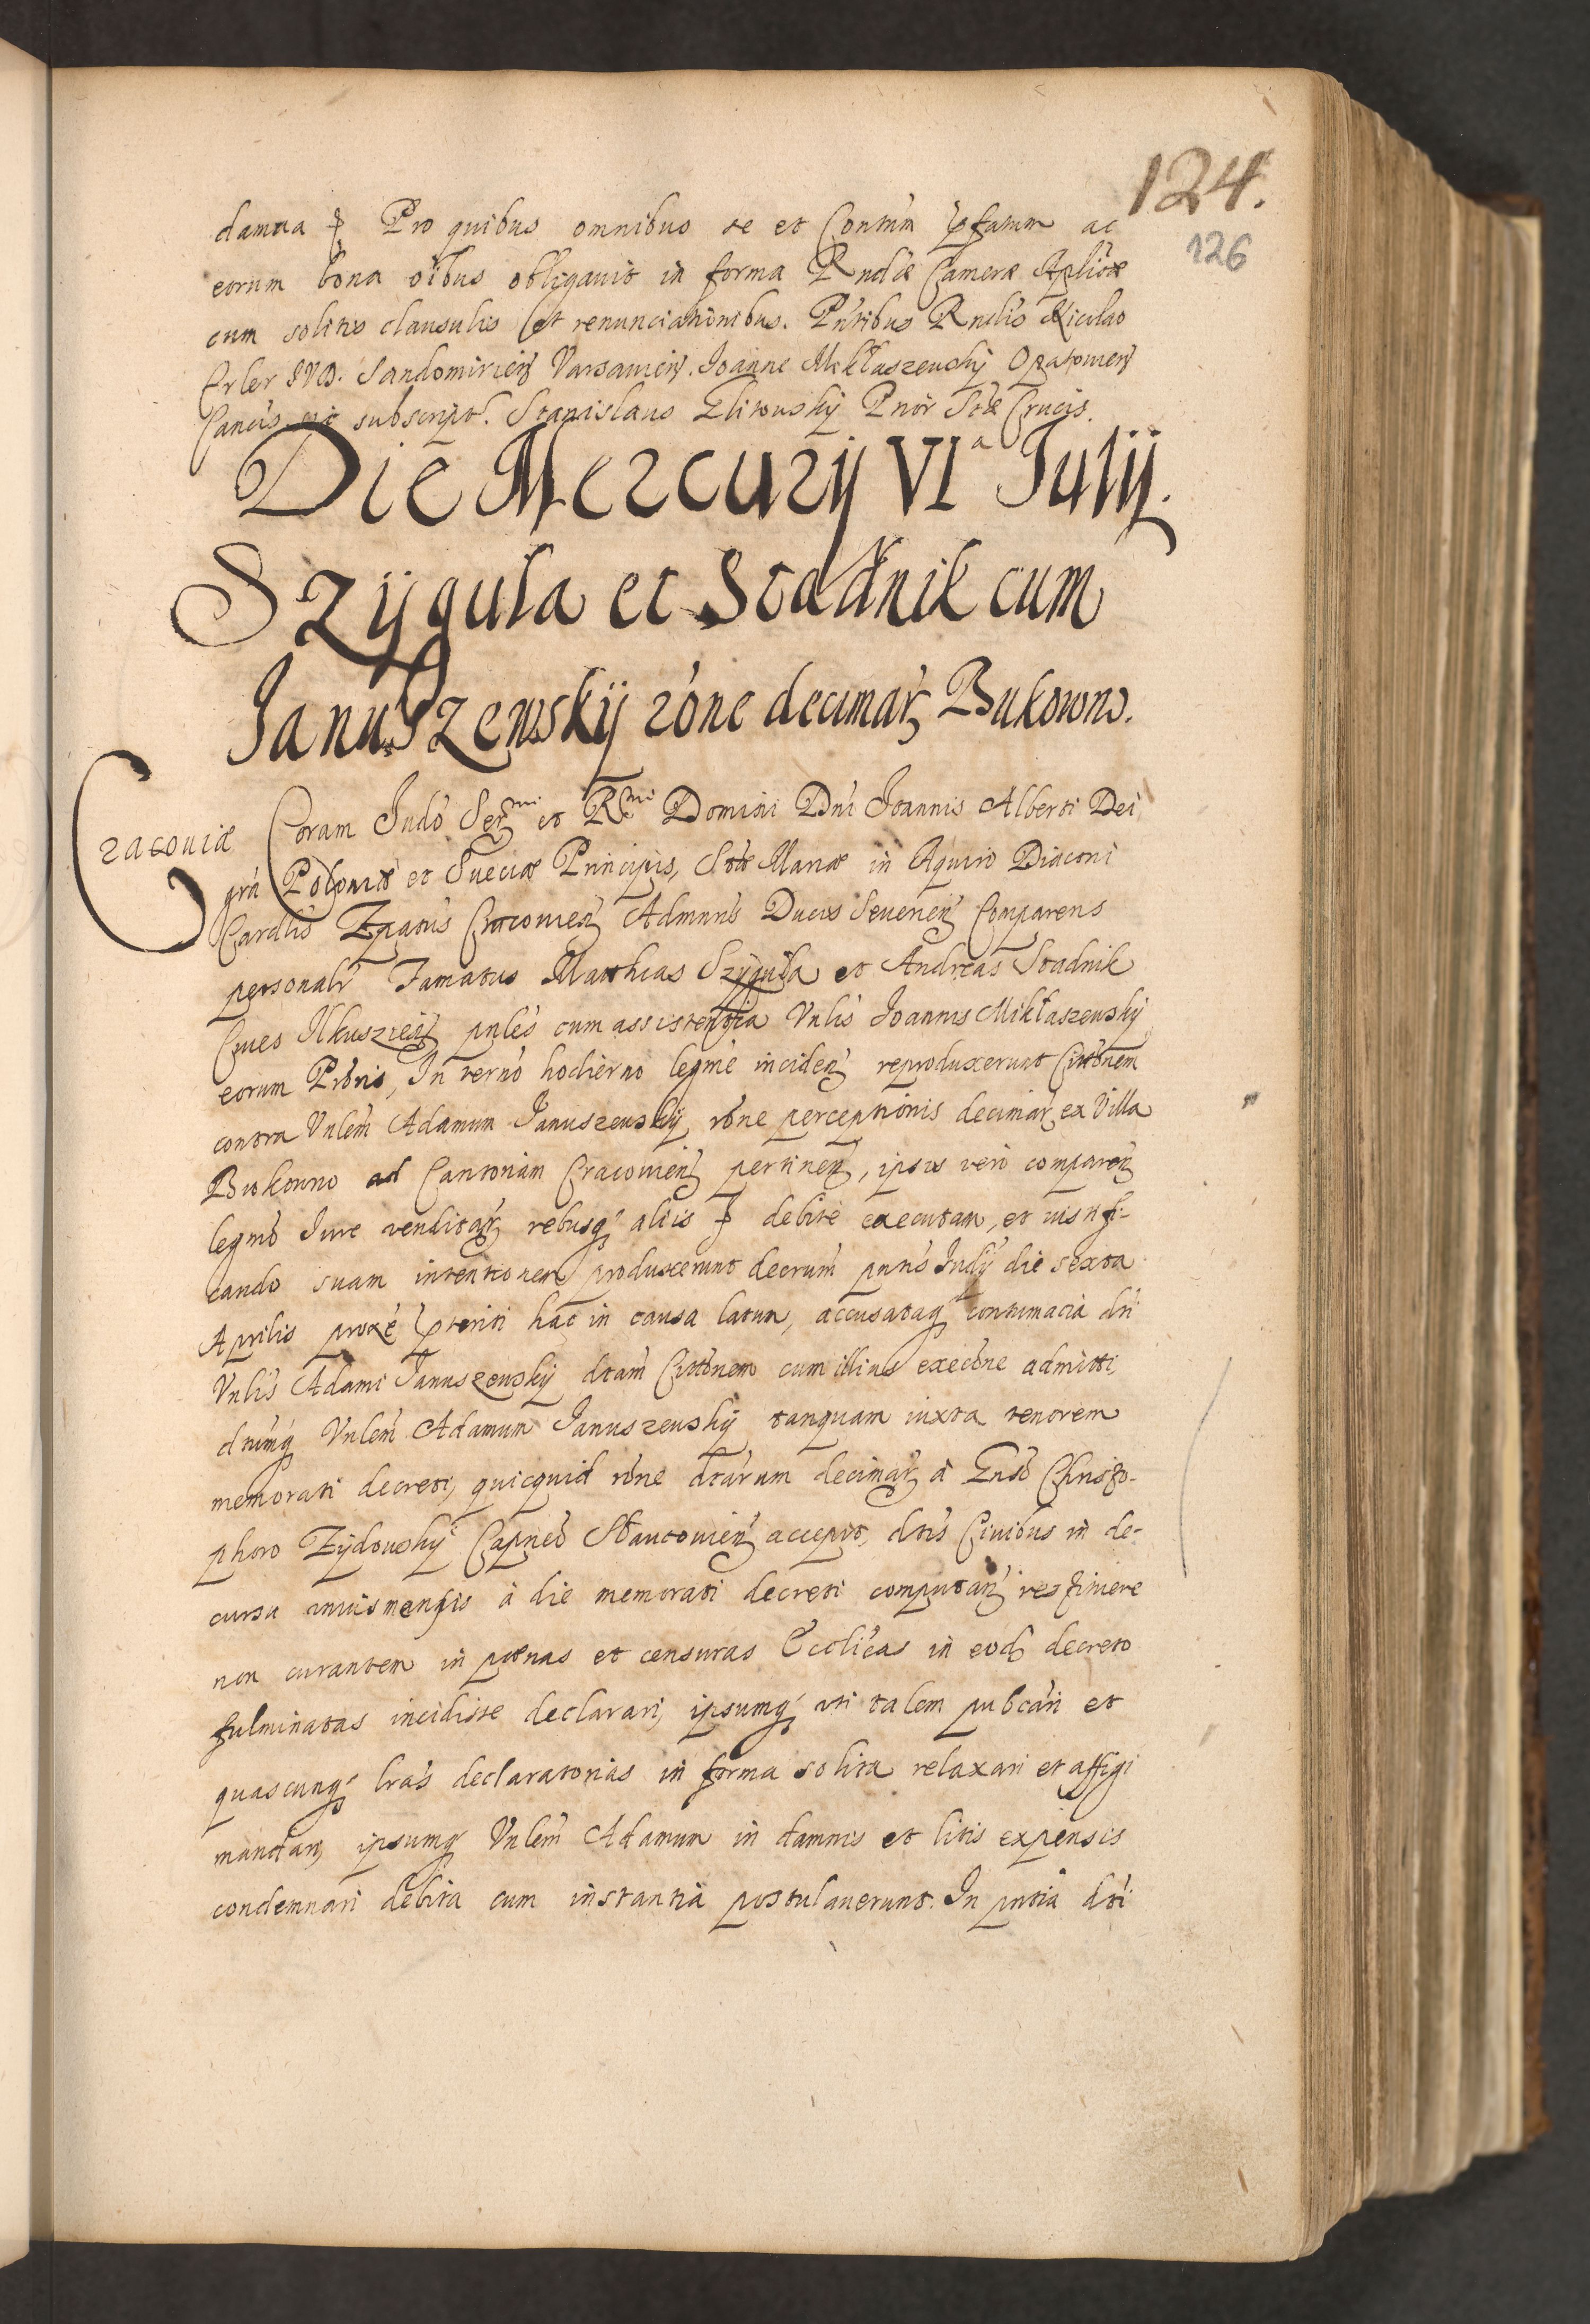 124.
126
damna &c Pro quibus omnibus se et Conventum pfatum ac
eorum bona oibus obligavit in forma Rndae Camerae Aplicae
cum solitis clausulis et renunciationibus. Pntibus Rndis Nicolao
Erler SVD. Sandomirien Varsavien. Joanne Mikłaszewskij Opatovien
Cancis. subscript. Stanislaus Prior Stae Crucis.
Die Mercurij VIa Julij.
Szijgula et Stadnik cum
Januszewskij rone decimar Bukowno.
Cracoviae Coram Judo Sermi et Rmi Domini Dni Joannis Alberti Dei
gra Poloniae et Sueciae Principis, Stae Mariae in Aquiro Diaconi
Cardlis Epatus Cracovien Admnris Ducis Severien Comparens
personalr Famatus Matthias Szijgula et Andreas Stadnik
Cives Ilkuszien pnles cum assistentia Vnlis Joannis Mikłaszewskij
eorum Pronis, In termo hodierno legme inciden reproduxerunt Cittonem
contra Vnlem Adamum Januszewskij rone perceptionis decimar ex Villa
Bukowno ad Cantoriam Cracovien pertinen, ipsis vero comparen
legme Jure venditar rebusq aliis &c debite executam, et iustifi-
cando suam intentionem produxerunt decrum pntis Judij die sexta
Aprilis proxe pteriti hac in causa latum, accusataq contumacia dti
Vnlis Adami Januszewskij dtam Cittonem cum illius execone admitti,
dtumq Vnlem Adamum Januszewskij tanquam iuxta tenorem
memorati decreti, quicquid rone dtarum decimar à Gnso Christo-
phoro Zijdowskij Capneo accepit, dtis Civibus in de-
cursu unius mensis à die memorati decreti computan restituere
non curantem in poenas et censuras Ecclicas in eod decreto
fulminatas incidisse declarari, ipsumq uti talem publcari et
quascunq lras declaratorias in forma solita relaxari et affigi
mandari, ipsumq Vnlem Adamum in damnis et litis expensis
condemnari debita cum instantia postulaverunt. In pntia dti